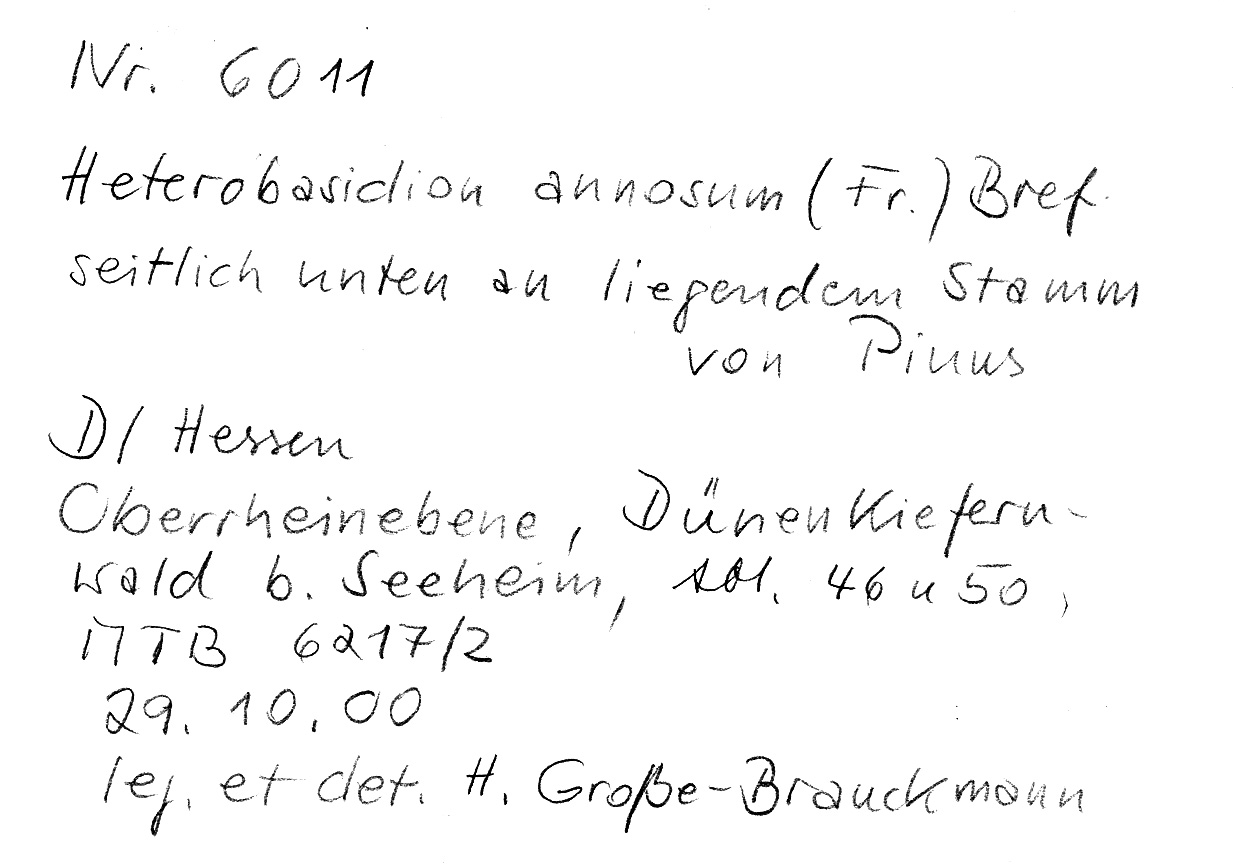 Nr. 6011
Heterobasidion annosum (Fr.) Bref.
seitlich unten an liegendem Stamm
von Pinus
D/ Hessen
Oberrheinebene, Dünenkiefern-
wald b. Seeheim, Abt. 46 u 50,
MTB 6217/2
29. 10. 00
leg. et det. H. Große-Brauckmann